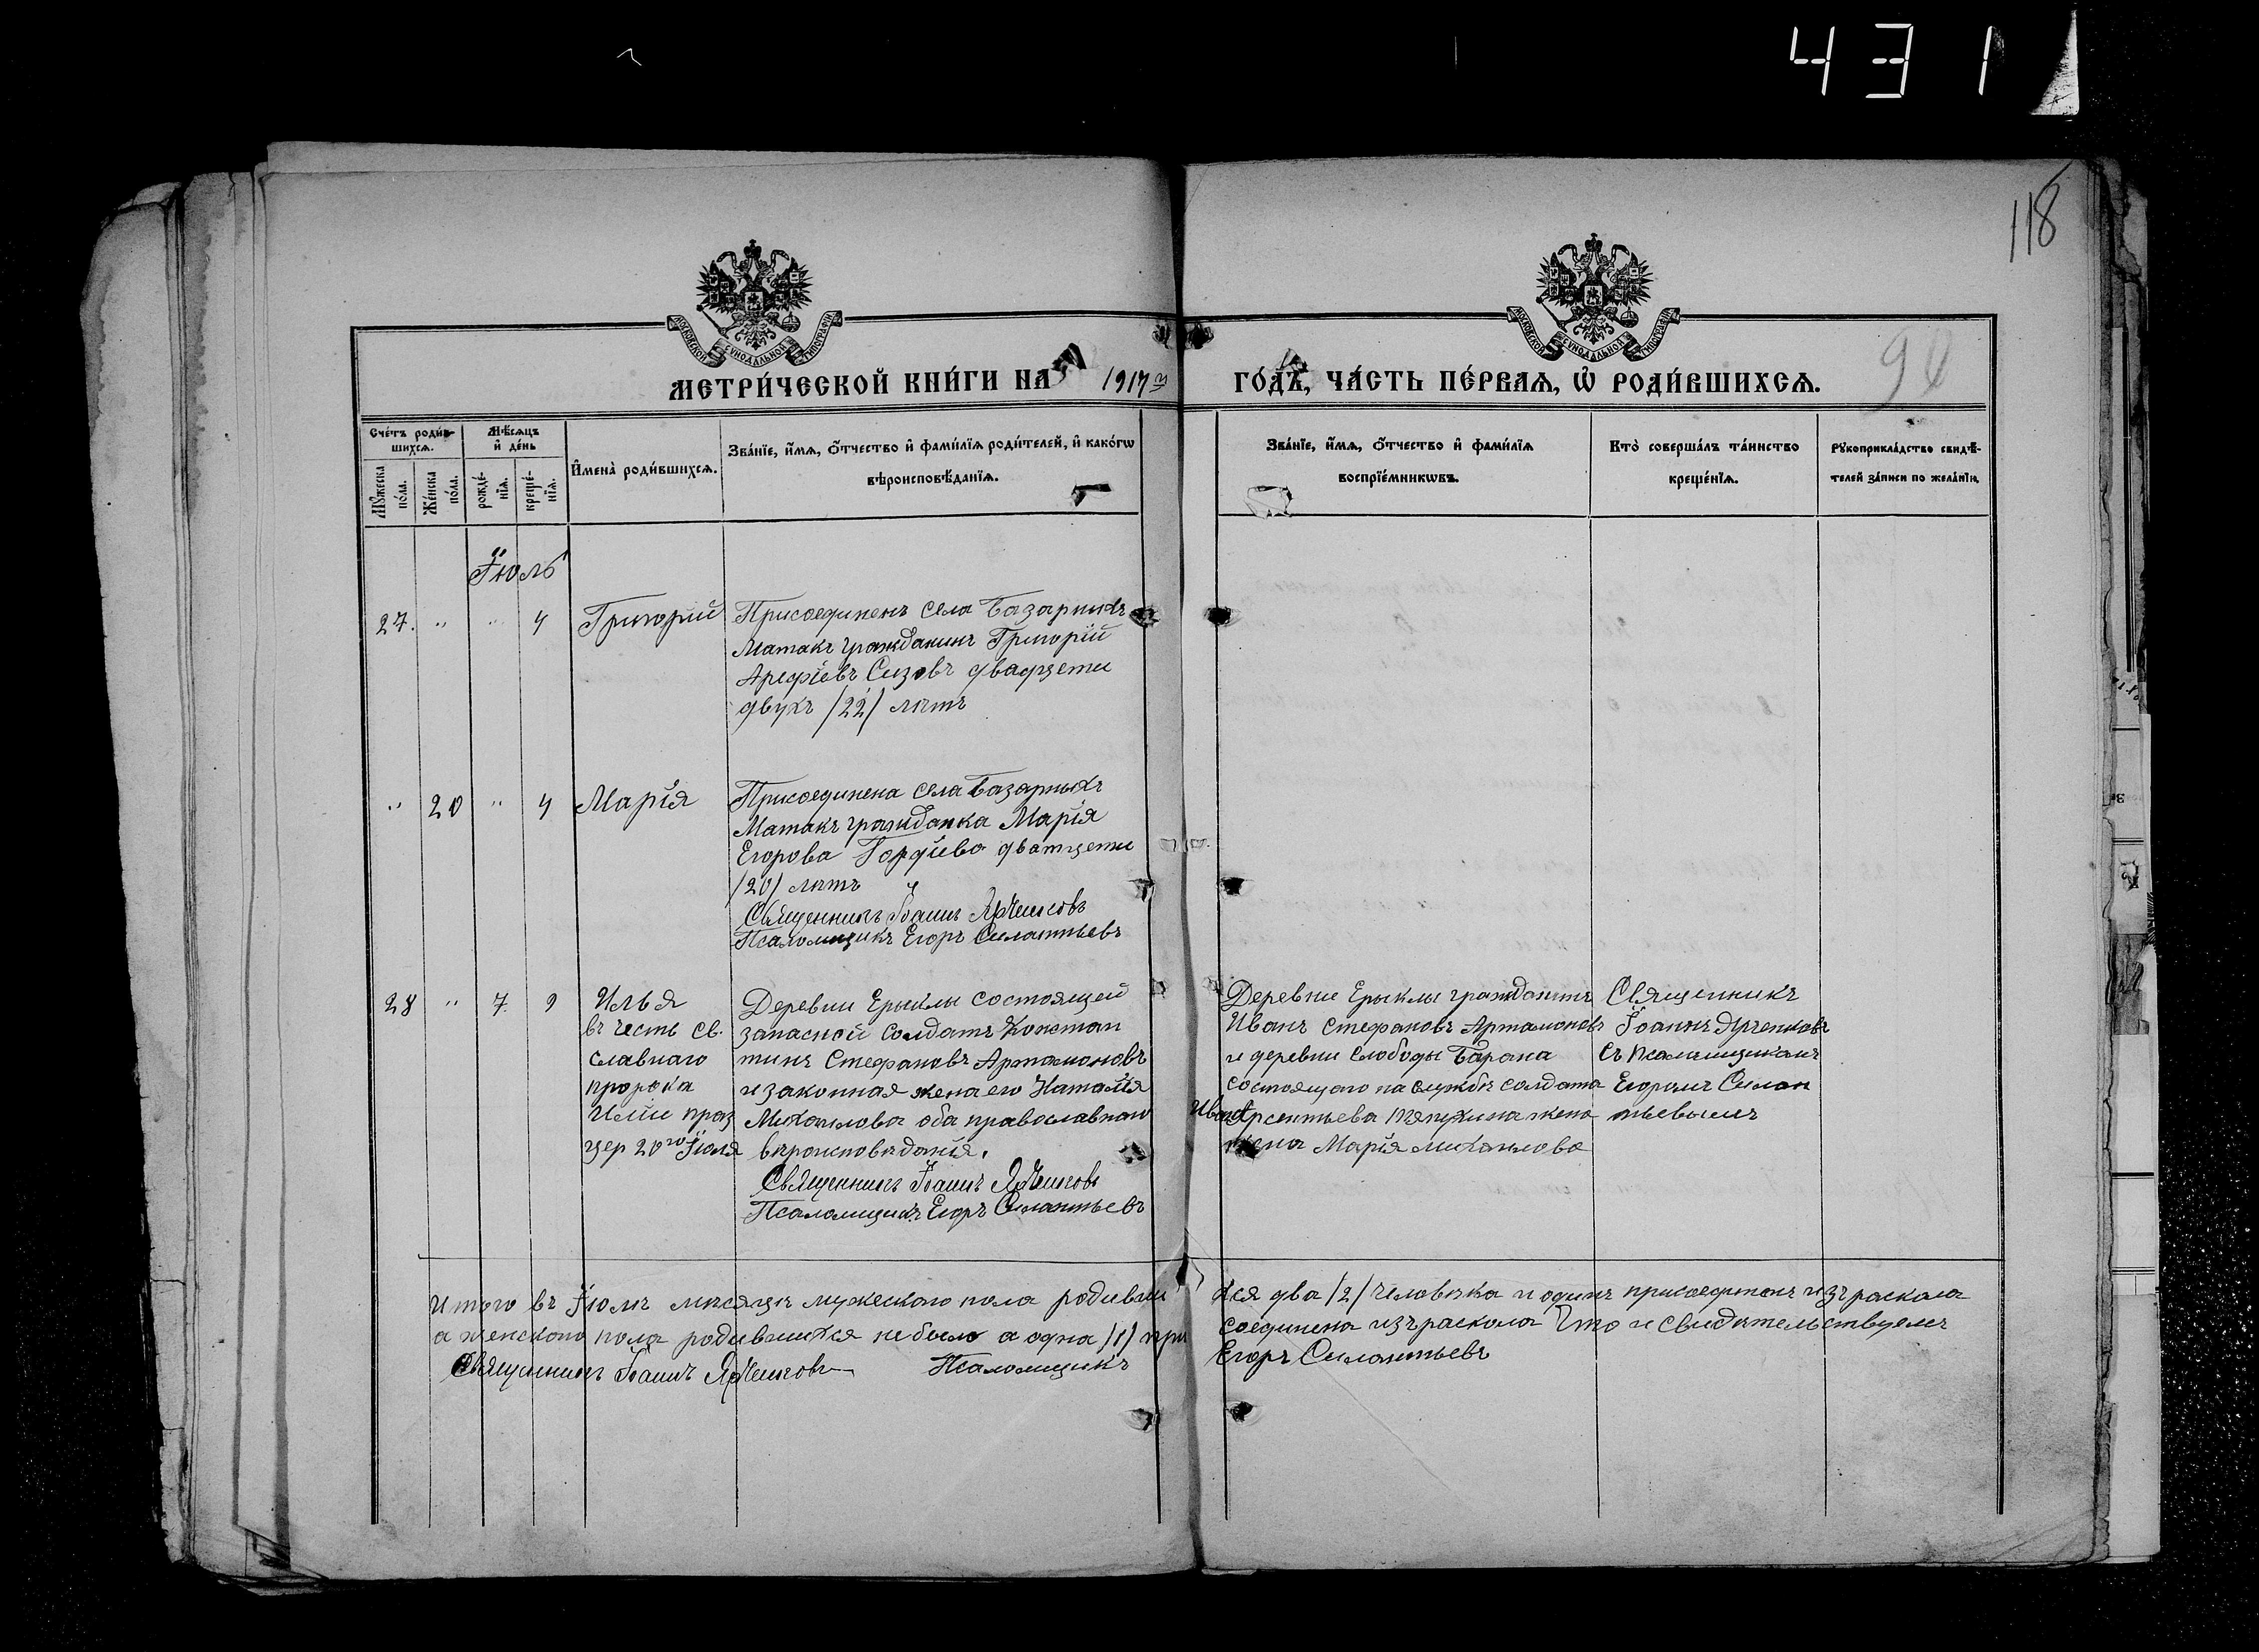 431
118
90
МОСКОВСКОЙ СѴНОДАЛЬНОЙ ТИПОГРАФІИ
МОСКОВСКОЙ СѴНОДАЛЬНОЙ ТИПОГРАФІИ
МЕТРИ́ЧЕСКОЙ КНИ́ГИ НА 1917 й ГО́ДЪ, ЧА́СТЬ ПЕ́РВАѦ, Ѡ҆ РОДИ́ВШИХСѦ.
Сче́тъ роди́в-
шихсѧ.
Мꙋ́жеска
по́ла.
Же́нска
по́ла.
Мѣ́сѧцъ
и҆ де́нь
рожде́-
нїѧ.
креще́-
нїѧ.
И҆мена̀ роди́вшихсѧ.
Зва́нїе, и҆́мѧ, ѻ҆́тчество и҆ фами́лїѧ роди́телей, и҆ како́гѡ
вѣроисповѣ́данїѧ.
Зва́нїе, и҆́мѧ, ѻ҆́тчество и҆ фами́лїѧ
воспрїе́мникѡвъ.
Кто̀ соверша́лъ та́инство
креще́нїѧ.
Рꙋкоприкла́дство свидѣ́-
телей за́писи по жела́нїю.
Іюль
27. " " 4 Григорій
Присоединенъ села Базарныхъ
Матакъ гражданинъ Григорій
Арефіевъ Сизовъ двадцети
двухъ /22/ лѣтъ
" 20 " 4 Марія
Присоединена села Базарныхъ
Матакъ гражданка Марія
Егорова Гордіева дватцети
/20/ лѣтъ
Священникъ Іоаннъ
Псаломщикъ Егоръ Силантьевъ
28 " 7. 9 Илья
въ честь св.
славнаго
пророка
Иліи праз
цер 20го Іюля
Деревни Ерыклы состоящей
запасной солдатъ Констан
тинъ Стефановъ Артамоновъ
и законная жена его Наталія
Михаилова оба православнаго
вѣроисповѣданія.
Священникъ Іоаннъ
Псаломщикъ Егоръ Силантьевъ
Деревни Ерыклы гражданинъ
Иванъ Стефановъ Артамоновъ
и деревни Слободы Барана
состоящаго на службѣ солдата
Ивана Арсентьева жена
жена Марія Михаилова
Священникъ
Іоаннъ
съ псаломщикомъ
Егоромъ Силан
тьевымъ
Итого въ Іюлѣ мѣсяцѣ мужескаго пола родивши хся два /2/ человѣка и одинъ присоединенъ изъ раскола
а женскаго пола родившихся не было а одна /1/ при соединена изъ раскола Что и свидѣтельствуемъ
Священникъ Іоаннъ Псаломщикъ Егоръ Силантьевъ